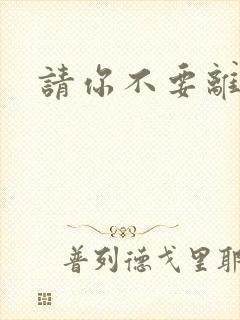 請你不要離
普列德戈里耶